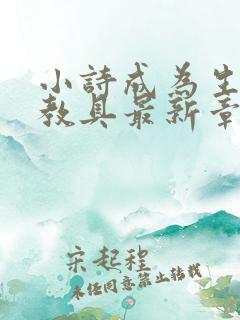 小詩戒為生
教具最新章
宋起程
未经同意禁止转载